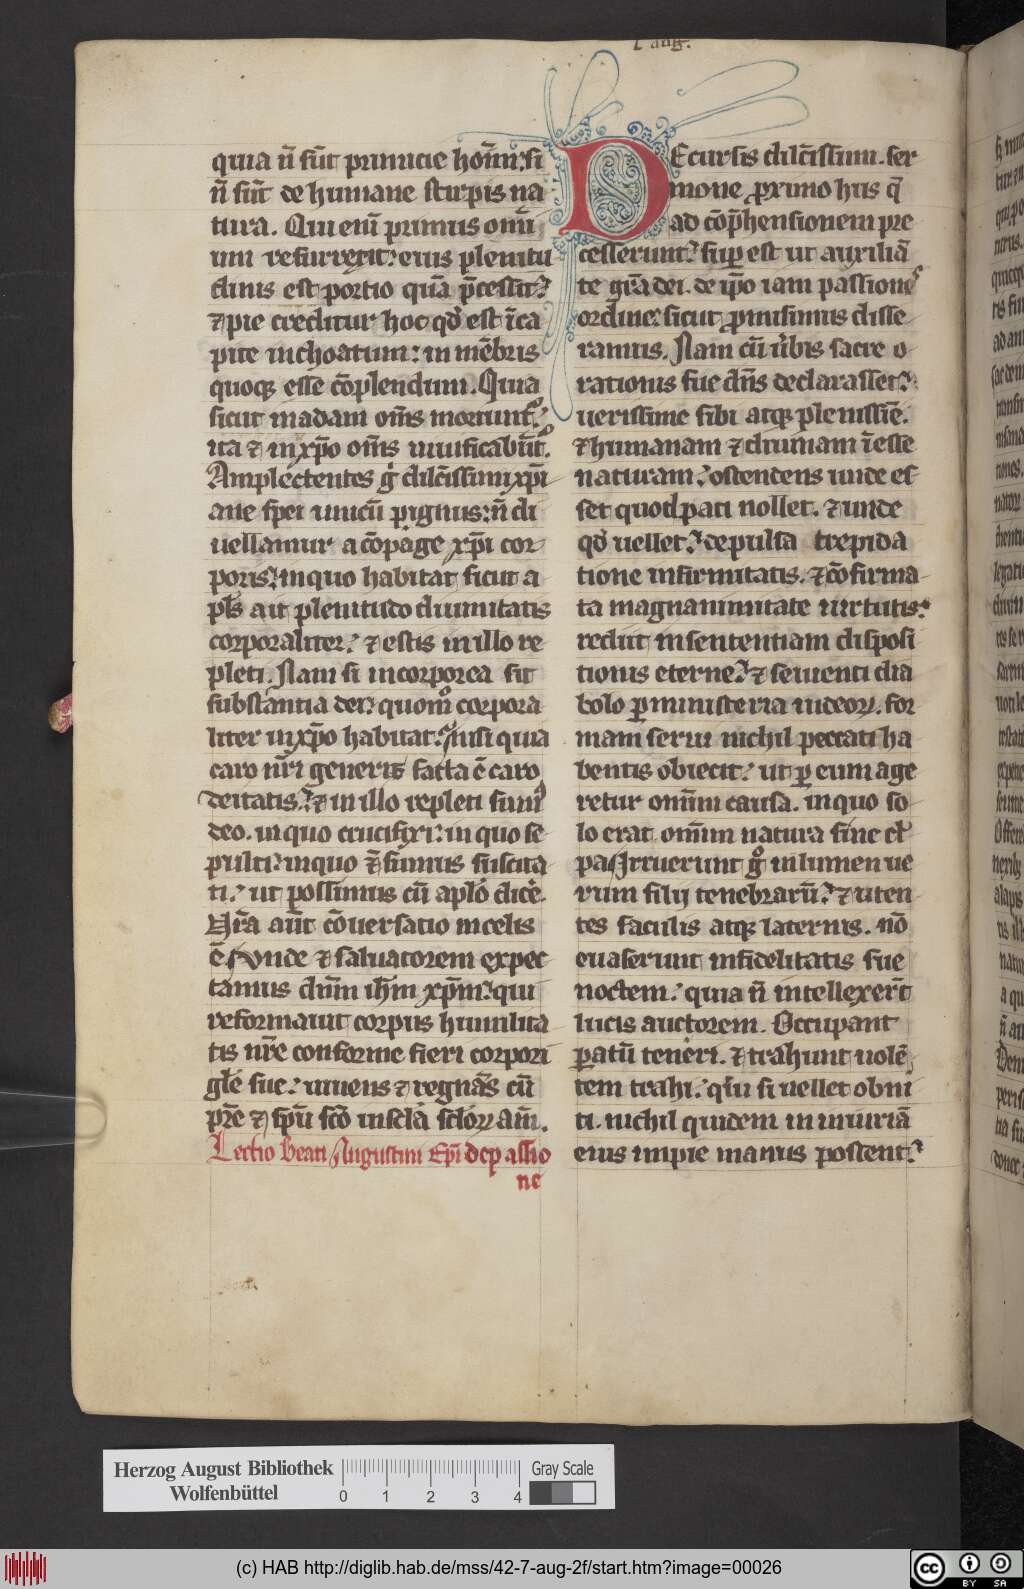 7 aug.
quia n̄ sūt primicie hoīm: si
n̄ sūt de humane stirpis na
tura. Qui enī primus omī
um resurrexit: eius plenitu
dinis est portio quā p̄cessit:
⁊ pie creditur hoc qd̄ est ī ca
pite inchoatum: in mēbris
quoq; esse cōplendum. Quia
sicut in adam om̄s moriunt᷑:
ita ⁊ in xp̄o om̄s uiuificabūt᷑.
Amplectentes ḡ dilc̄issimi xp̄i
ane spei unicū pignus: n̄ di
uellamur a cōpage xp̄i cor
poris: in quo habitat sicut a
pl̄s ait plenitudo diuinitatis
corporaliter: ⁊ estis in illo re
pleti. Nam si incorporea sit
substantia dei: quom̊ corpora
liter in xp̄o habitat: nisi quia
caro nr̄i generis facta ē caro
deitatis: ⁊ in illo repleti sumꝰ
deo. in quo crucifixi: in quo se
pulti: in quo ⁊̄ sumus suscita
ti: ut possimus cū aplo dicē.
Nr̄a aūt cōuersatio in celis
ē. Unde ⁊ saluatorem expec
tamus dn̄m ih̄m xp̄m: qui
reformauit corpus humilita
tis nr̄e conforme fieri corpori
gl̄e sue: uiuens ⁊ regnās cū
pr̄e ⁊ sp̄u sc̄o in scl̄a scloꝝ am̄.
Lectio beati Augustini Ep̄i de passio
ne
DEcursis dilc̄issimi. ser
mone proximo hiis q̄
ad cōp̄hensionem pre
cesserunt: sup̄ est ut auxiliā
te gr̄a dei. de ip̄o iam passionꝭ
ordine: sicut promisimus disse
ramus. Nam cū ūbis sacre o
rationis sue dn̄s declarasset:
uerissime sibi atq; plenissīe.
⁊ humanam ⁊ diuinam īesse
naturam: ostendens unde es
set quod pati nollet. ⁊ unde
qd̄ uellet: depulsa trepida
tione infirmitatis. ⁊ cōfirma
ta magnanimitate uirtutis:
rediit in sententiam disposi
tionis eterne: ⁊ seuienti dia
bolo ꝑ ministeria iudeoꝝ. for
mam serui nichil peccati ha
bentis obiecit: ut ꝑ eum age
retur omīm causa. in quo so
lo erat omīm natura sine cl̄
pa. Irruerunt ḡ in lumen ue
rum filij tenebrarū: ⁊ uten
tes faculis atq; laternis. nō
euaserunt infidelitatis sue
noctem: quia n̄ intellexer̄t
lucis auctorem. Occupant
ꝑatū teneri. ⁊ trahunt uolē
tem trahi: q̇ si uellet obni
ti. nichil quidem in iniuriā
eius impie manus possent:
Herzog August Bibliothek
Wolfenbüttel
0 1 2 3 4
Gray Scale
(c) HAB http://diglib.hab.de/mss/42-7-aug-2f/start.htm?image=00026
cc BY SA